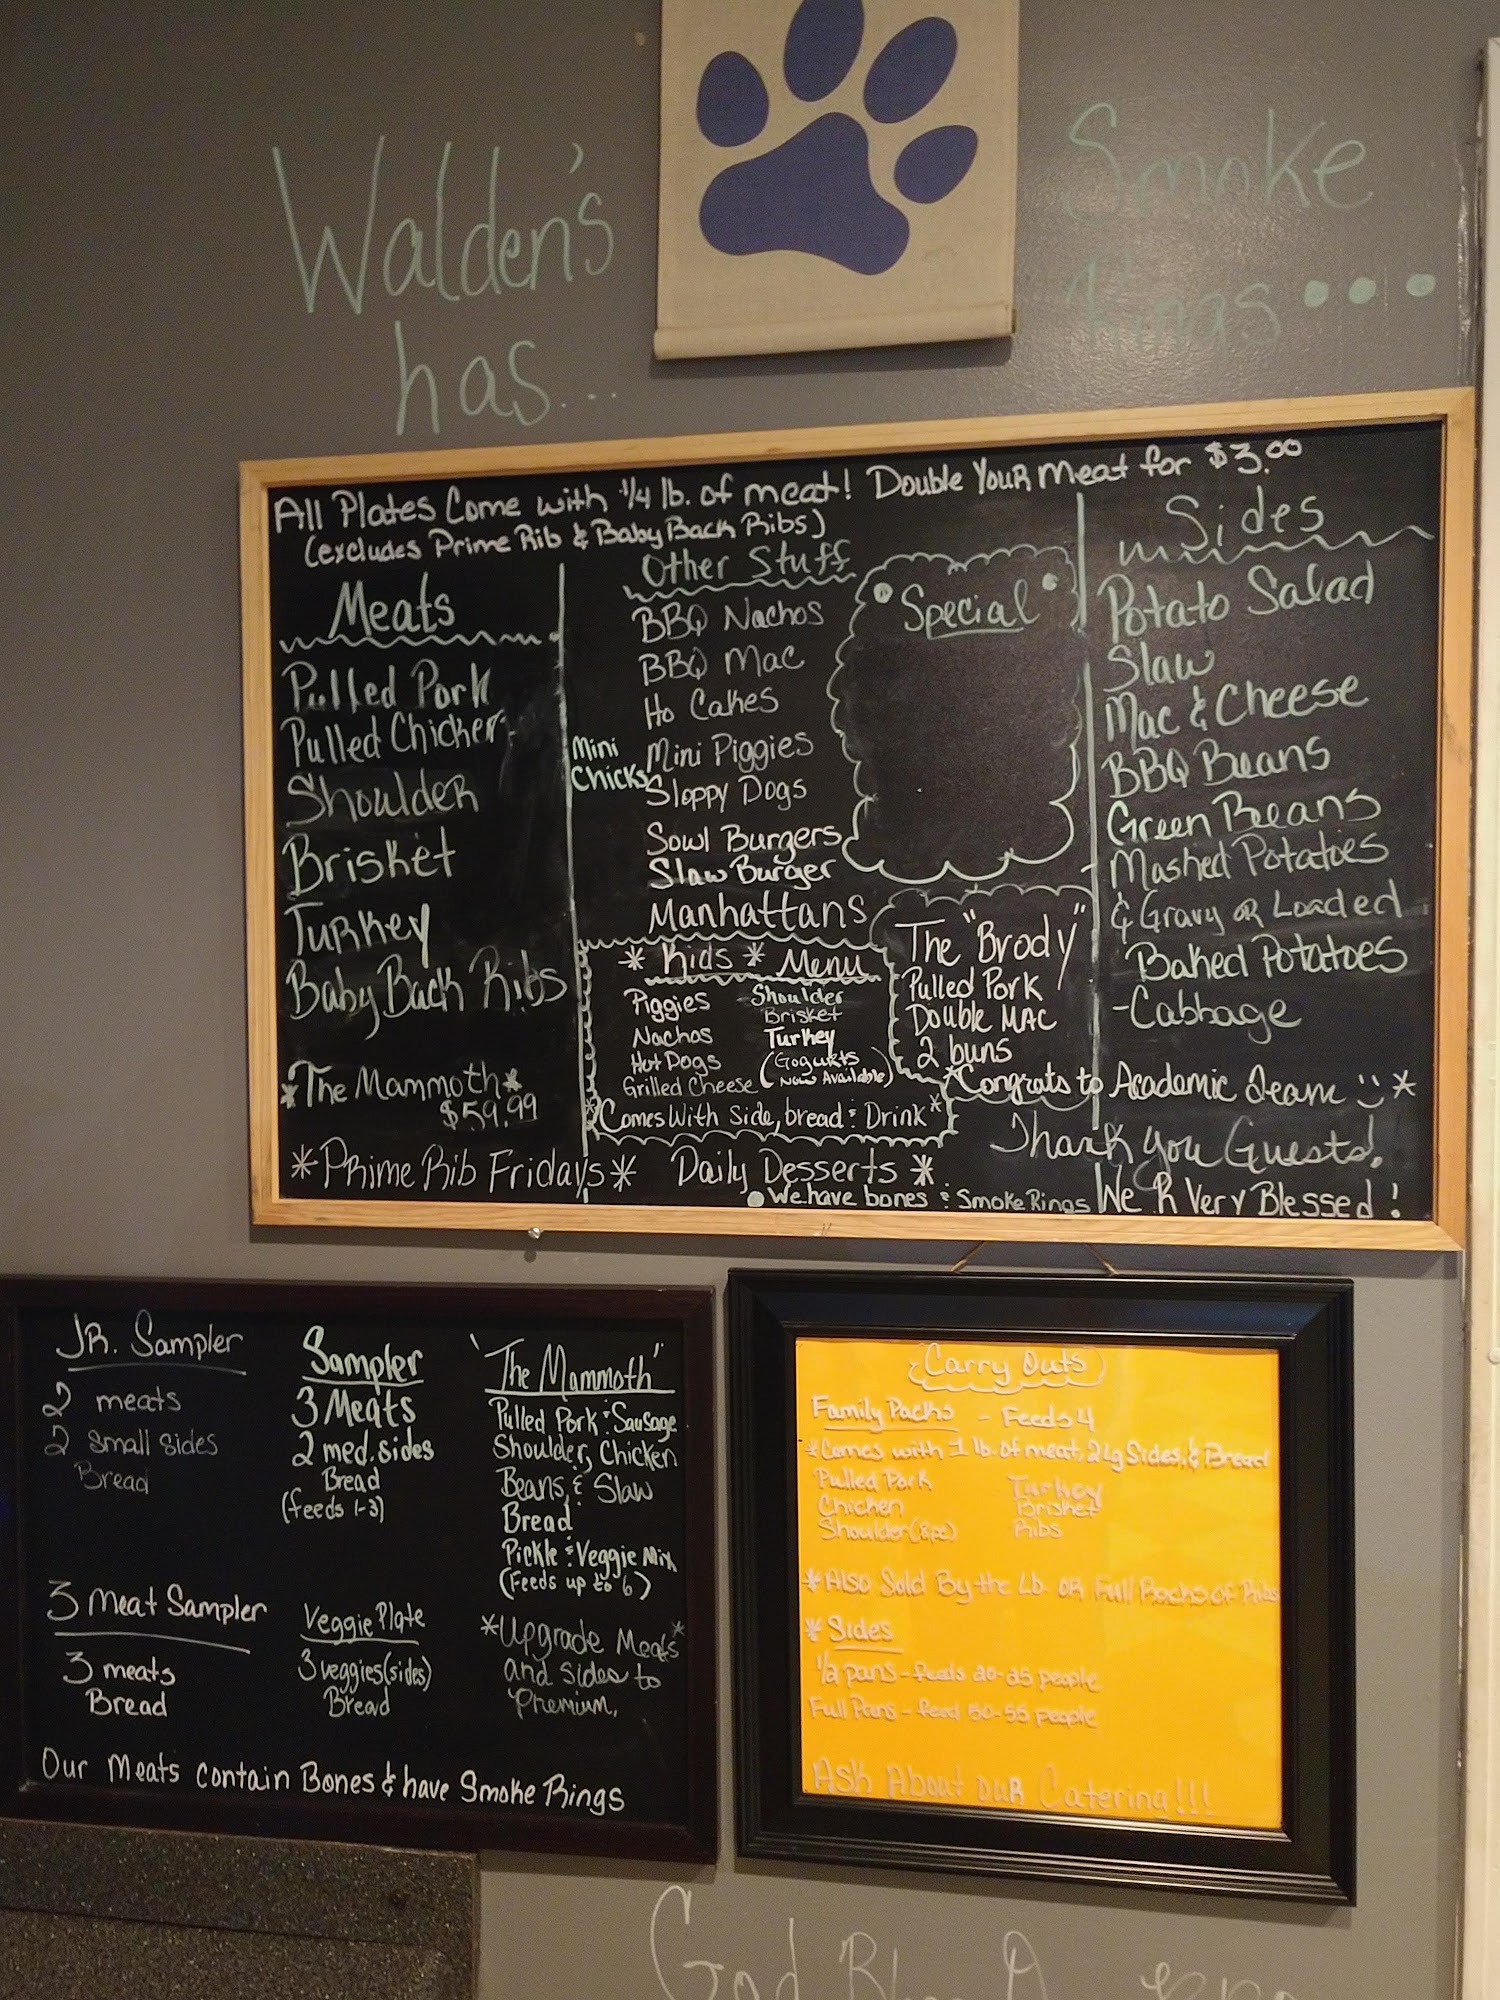 Walden's
has...
Smoke
Rings...
All Plates Come with 1/4 lb. of meat! Double Your Meat for $3.00
(excludes Prime Rib & Baby Back Ribs)
Meats
Pulled Pork
Pulled Chicken
Shoulder
Brisket
Turkey
Baby Back Ribs
*The Mammoth*
$59.99
Other Stuff
BBQ Nachos
BBQ Mac
Ho Cakes
Mini Chicks
Mini Piggies
Sloppy Dogs
Sowl Burgers
Slaw Burger
Manhattans
Special
The "Brody"
Pulled Pork
Double MAC
2 buns
* Kids * Menu
Piggies
Nachos
Hot Dogs
Grilled Cheese
Shoulder
Brisket
Turkey
(Gogurts
Now Available)
*Comes With Side, bread & Drink*
Sides
Potato Salad
Slaw
Mac & Cheese
BBQ Beans
Green Beans
Mashed Potatoes
& Gravy or Loaded
Baked Potatoes
-Cabbage
*Congrats to Academic Team *
Thank you Guests!
We R Very Blessed!
*Prime Rib Fridays* Daily Desserts *
We have bones & Smoke Rings
JR. Sampler
2 meats
2 small sides
Bread
Sampler
3 Meats
2 med. sides
Bread
(feeds 1-3)
"The Mammoth"
Pulled Pork & Sausage
Shoulder, Chicken
Beans & Slaw
Bread
Pickle & Veggie Mix
(Feeds up to 6)
*Upgrade Meats*
and sides to
Premium.
3 Meat Sampler
3 meats
Bread
Veggie Plate
3 veggies(sides)
Bread
Our Meats contain Bones & have Smoke Rings
Carry Outs
Family Packs - Feeds 4
*Comes with 1 lb. of meat, 2 Lg Sides, & Bread
Pulled Pork
Chicken
Shoulder (8pc)
Turkey
Brisket
Ribs
*Also Sold By the Lb. or Full Racks of Ribs
* Sides
1/2 pans - feeds 20-25 people
Full Pans - feed 50-55 people
Ask About our Catering!!!
God